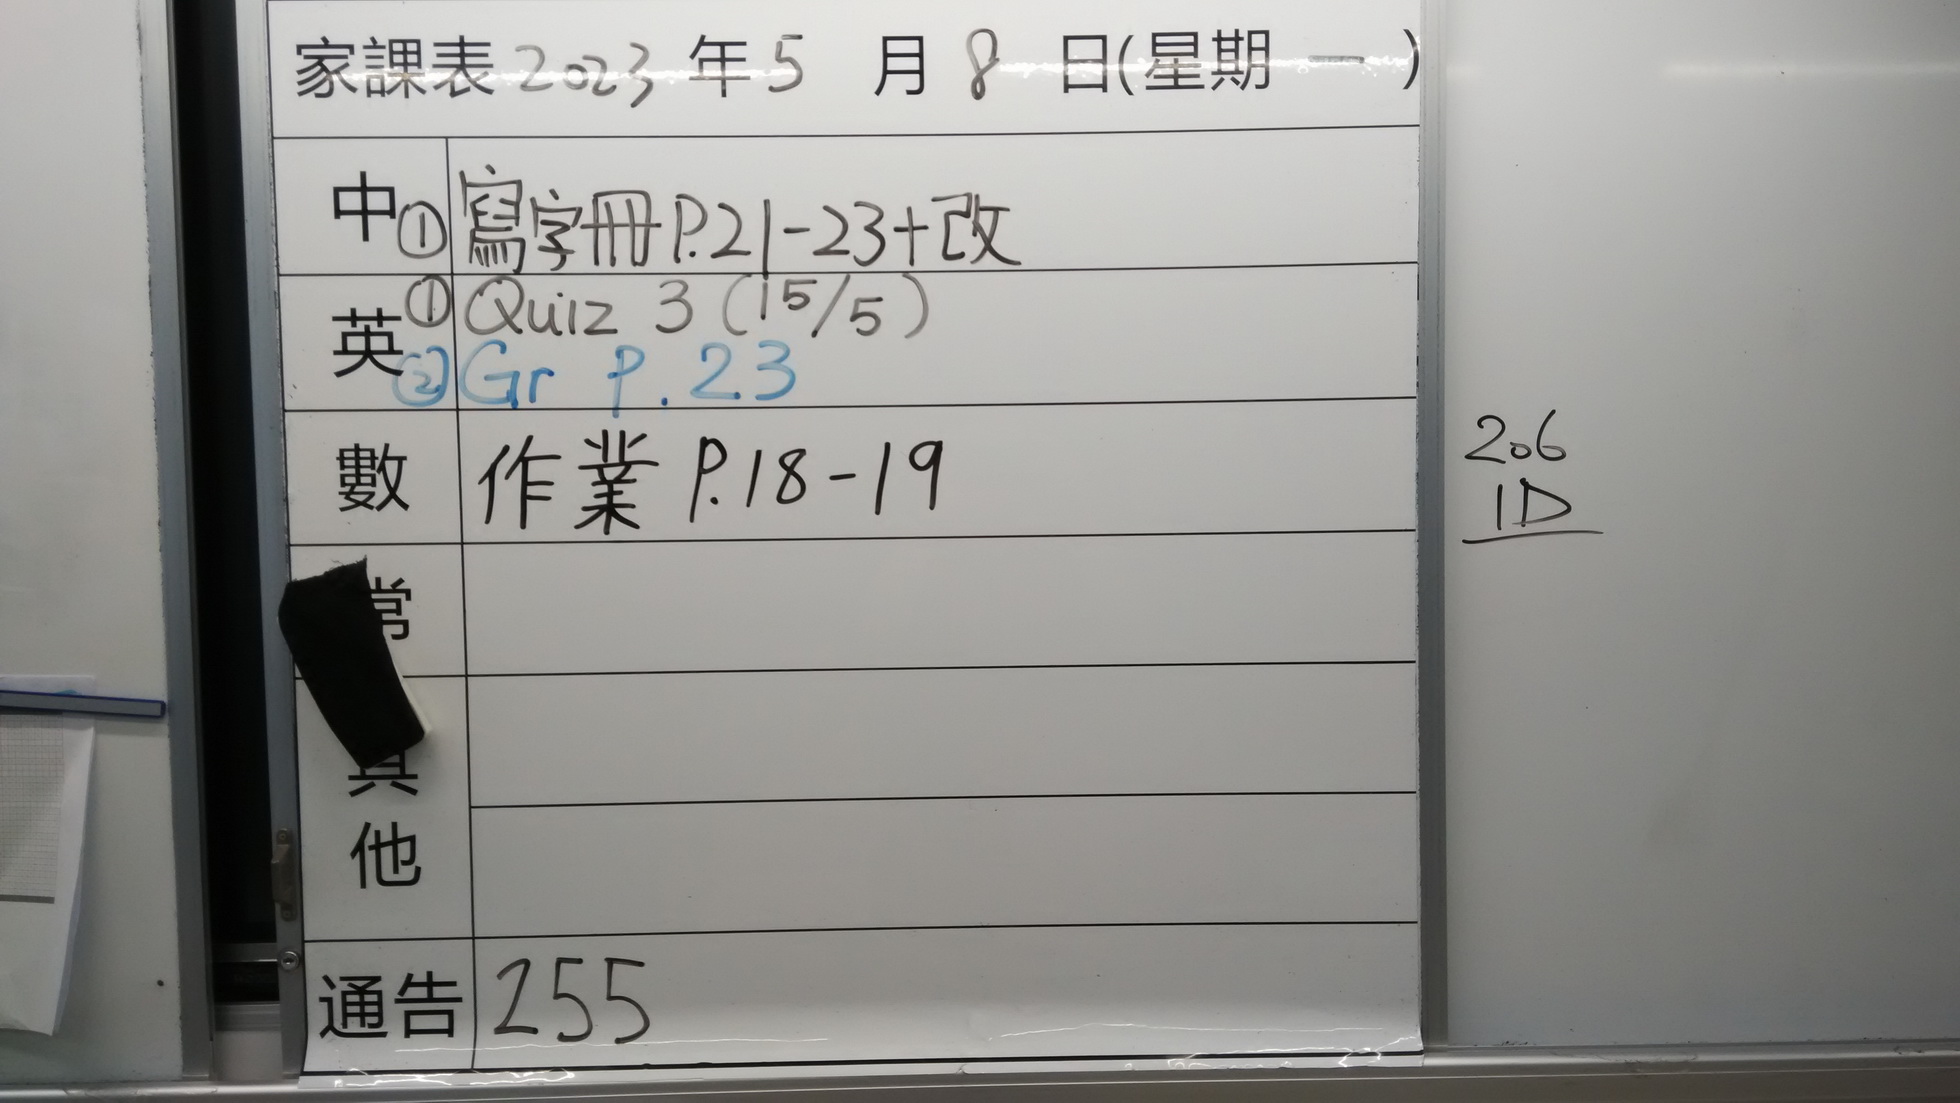 家課表 2023 年 5 月 8 日(星期 一 )
中 ① 寫字冊 P.21-23+改
英 ① Quiz 3 (15/5)
② Gr P. 23
數 作業 P.18-19
常
其
他
通告 255
206
1D